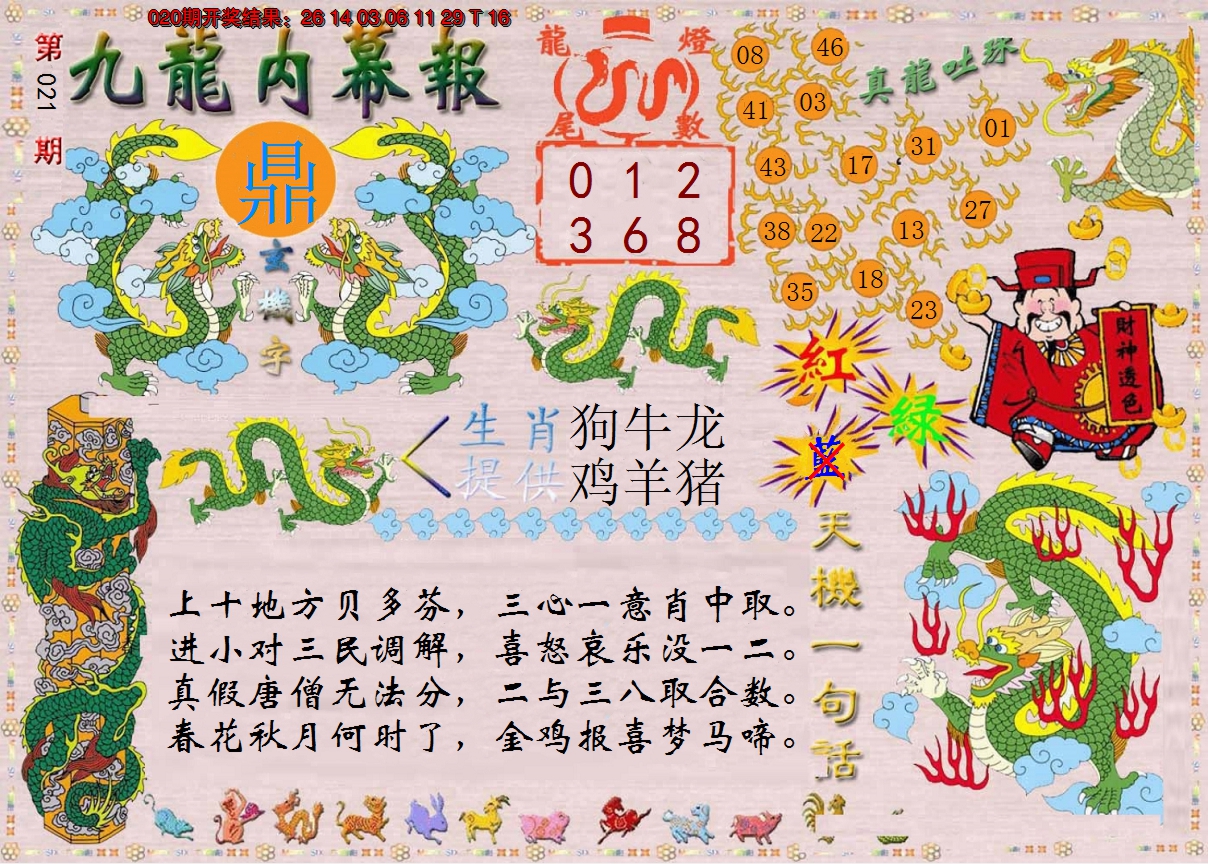 020期开奖结果：26 14 03 06 11 29 T 16
第021期
九龍内幕報
鼎
玄機字
龍燈
尾數
0 1 2
3 6 8
真龍吐珠
08 46
41 03
43 17 31 01
38 22 13 27
35 18 23
紅
綠
藍
財神透色
生肖提供
狗牛龙
鸡羊猪
天機一句話
上十地方贝多芬，三心一意肖中取。
进小对三民调解，喜怒哀乐没一二。
真假唐僧无法分，二与三八取合数。
春花秋月何时了，金鸡报喜梦马啼。